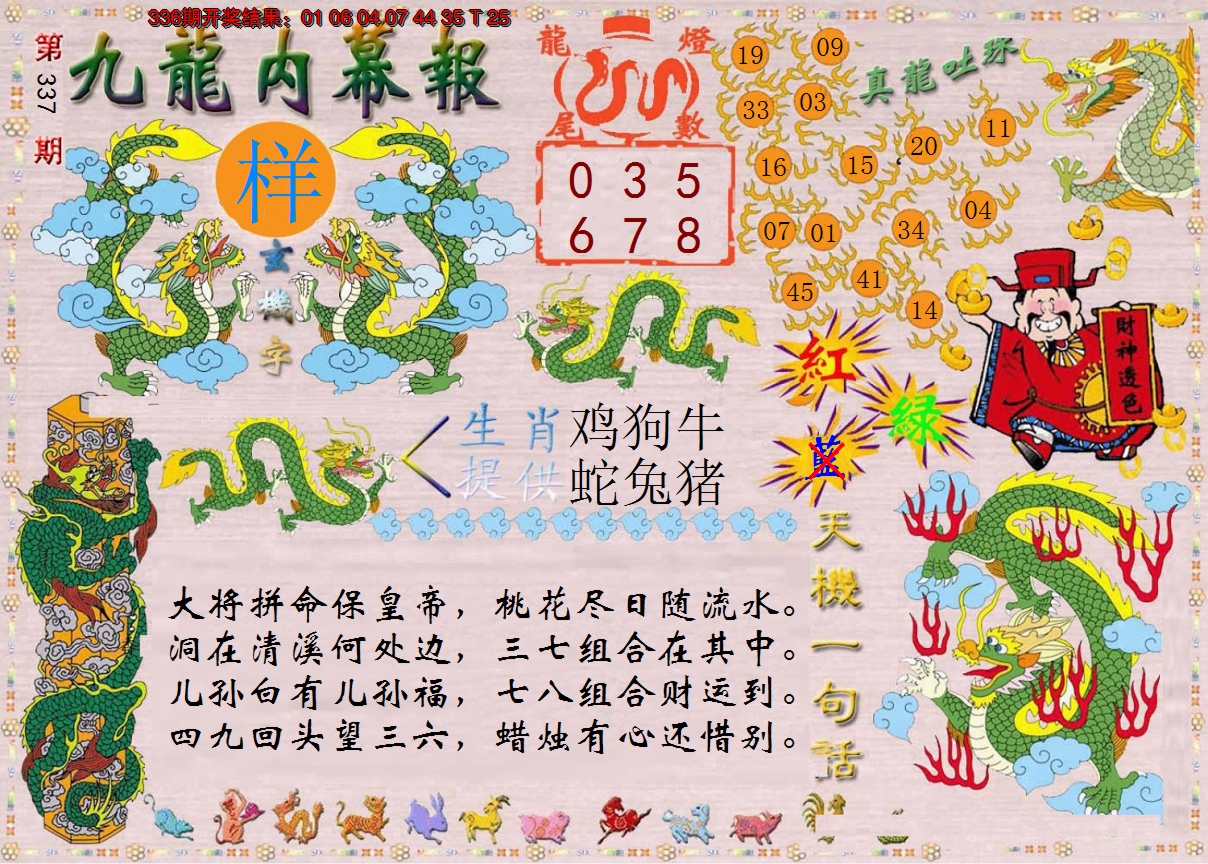 336期开奖结果：01 06 04 07 44 35 T 25
第337期
九龍内幕報
样
玄機字
龍燈
尾數
0 3 5
6 7 8
真龍吐珠
19 09
33 03
20 11
16 15
04
07 01 34
41
45 14
財神透色
紅
綠
藍
生肖 鸡狗牛
提供 蛇兔猪
天機一句話
大将拼命保皇帝，桃花尽日随流水。
洞在清溪何处边，三七组合在其中。
儿孙白有儿孙福，七八组合财运到。
四九回头望三六，蜡烛有心还惜别。